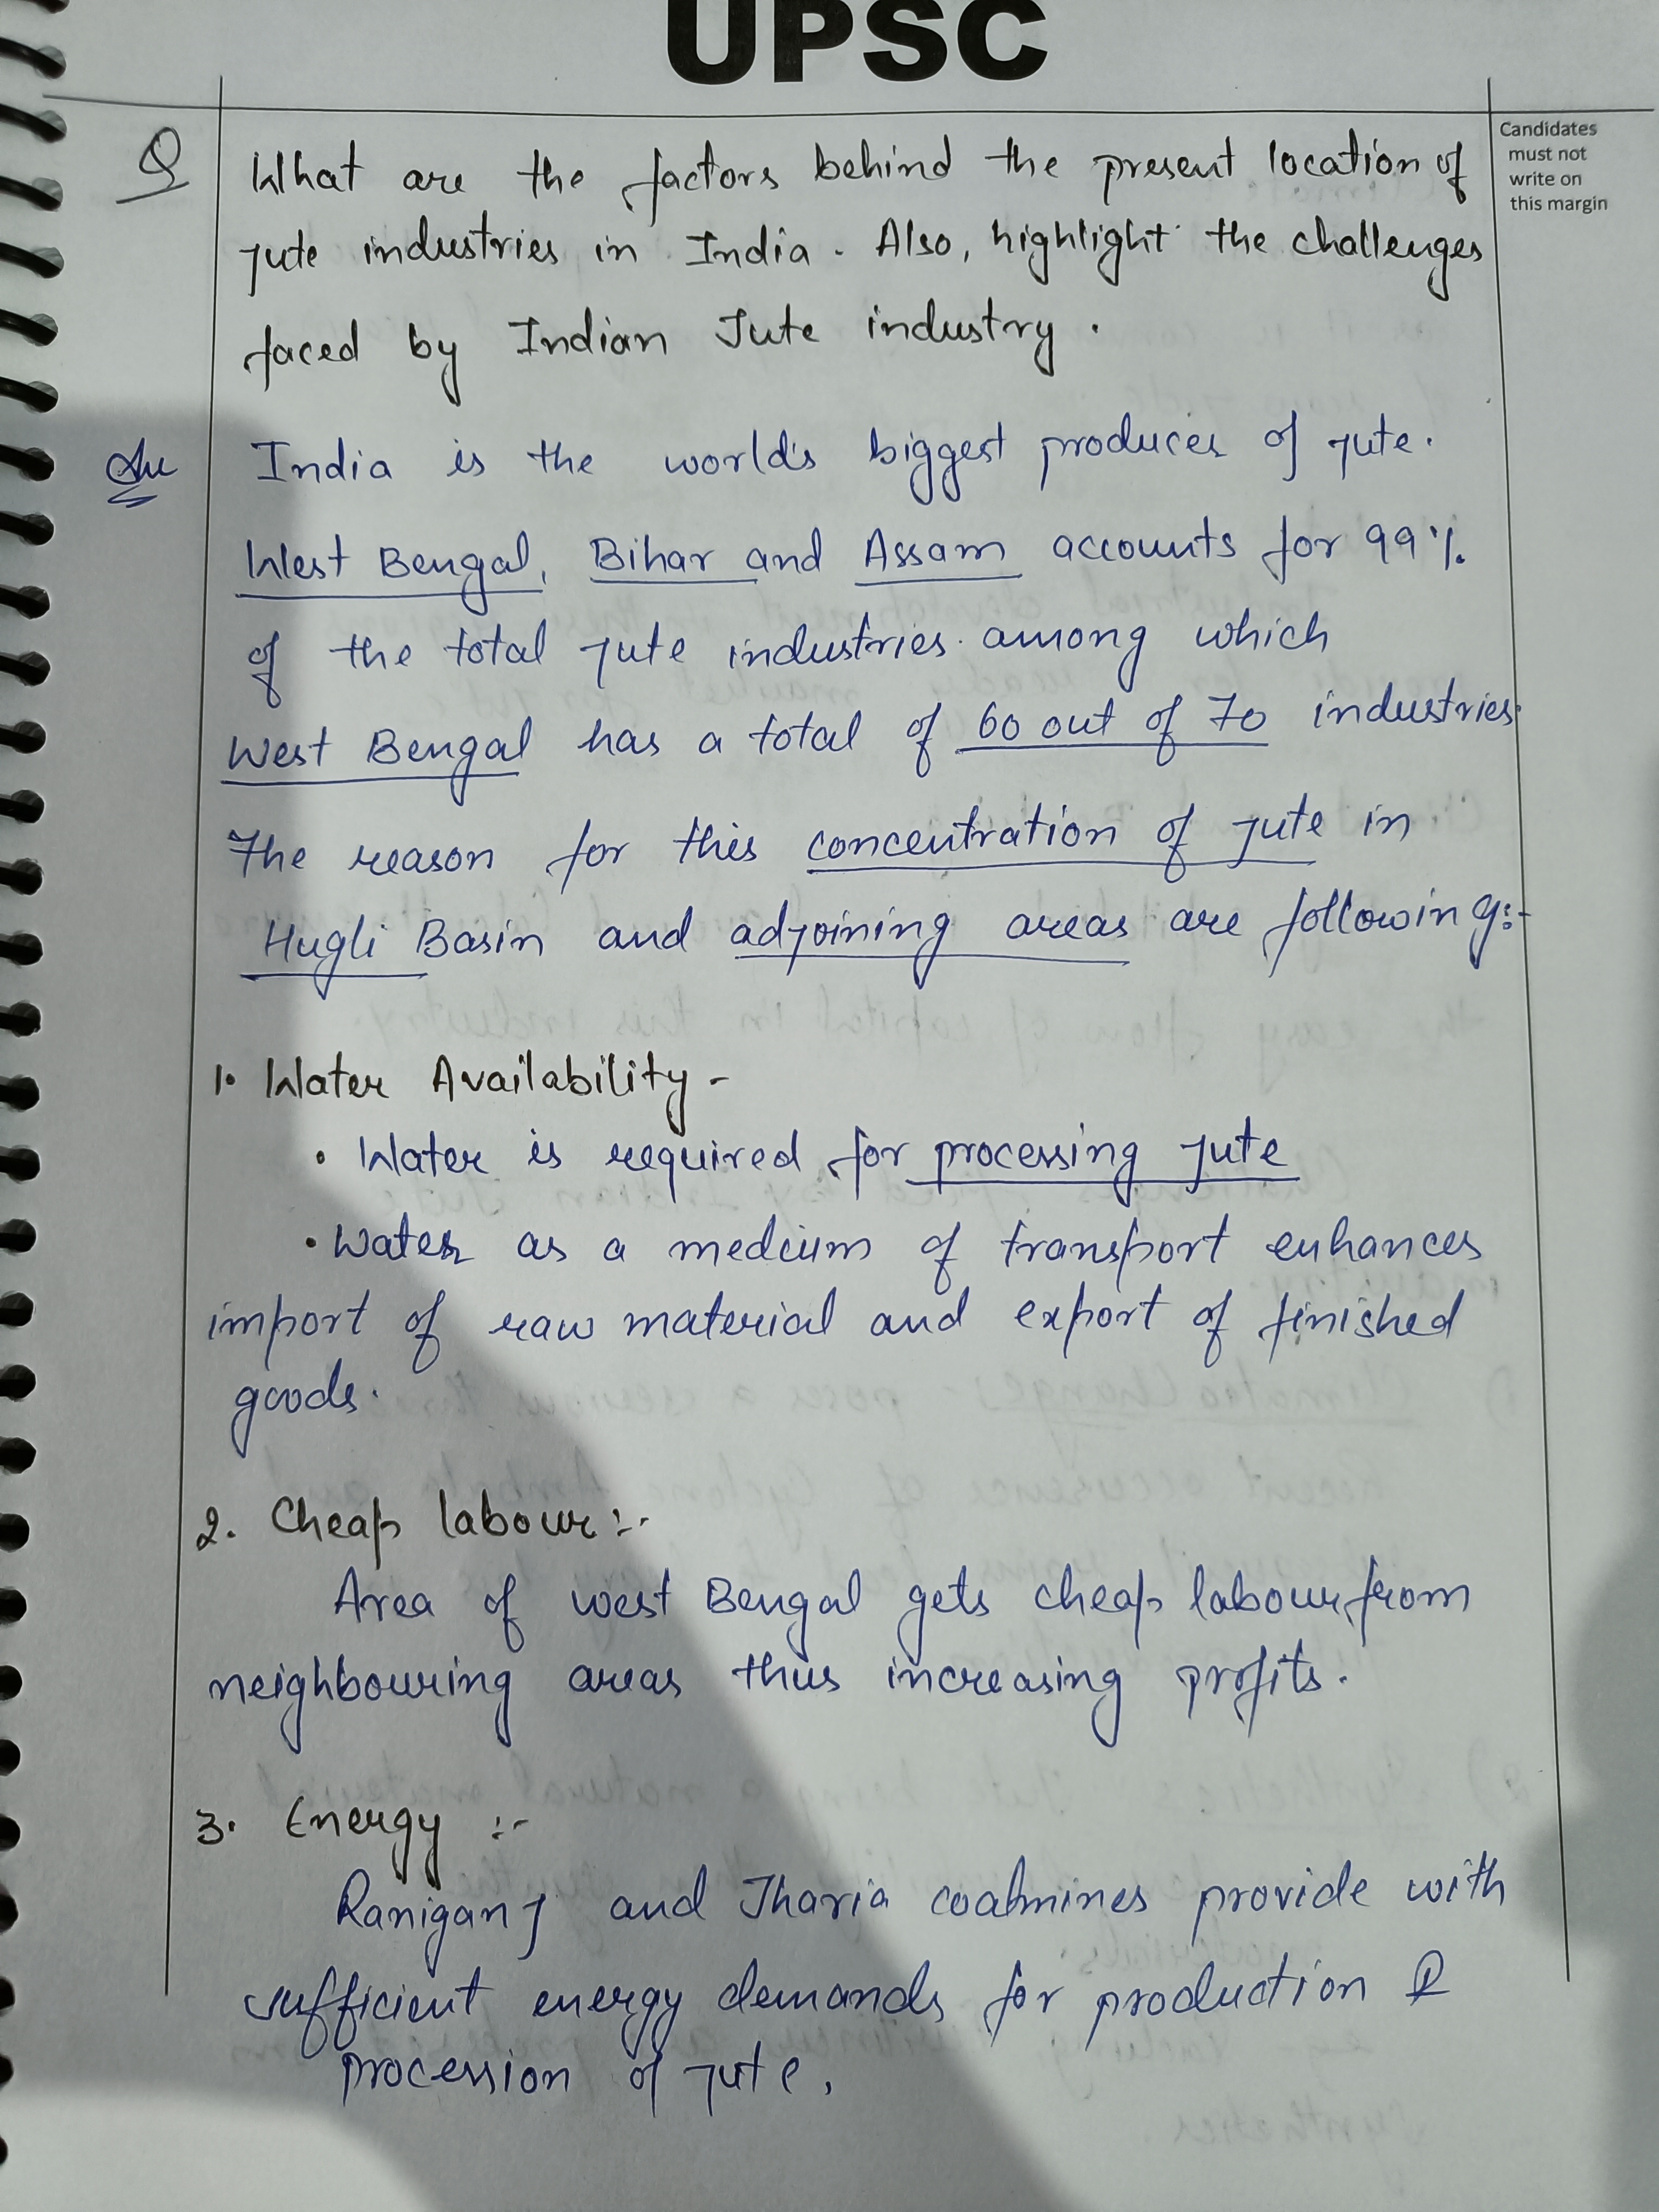 UPSC
Candidates
must not
write on
this margin
Q What are the factors behind the present location of
jute industries in India. Also, highlight the challenges
faced by Indian Jute industry.
Ans India is the world's biggest producer of jute.
West Bengal, Bihar and Assam accounts for 99%
of the total jute industries among which
West Bengal has a total of 60 out of 70 industries.
The reason for this concentration of jute in
Hugli Basin and adjoining areas are following:-
1. Water Availability -
• Water is required for processing jute
• Water as a medium of transport enhances
import of raw material and export of finished
goods.
2. Cheap labour :-
Area of west Bengal gets cheap labour from
neighbouring areas thus increasing profits.
3. Energy :-
Raniganj and Jharia coalmines provide with
sufficient energy demands for production &
procession of jute.